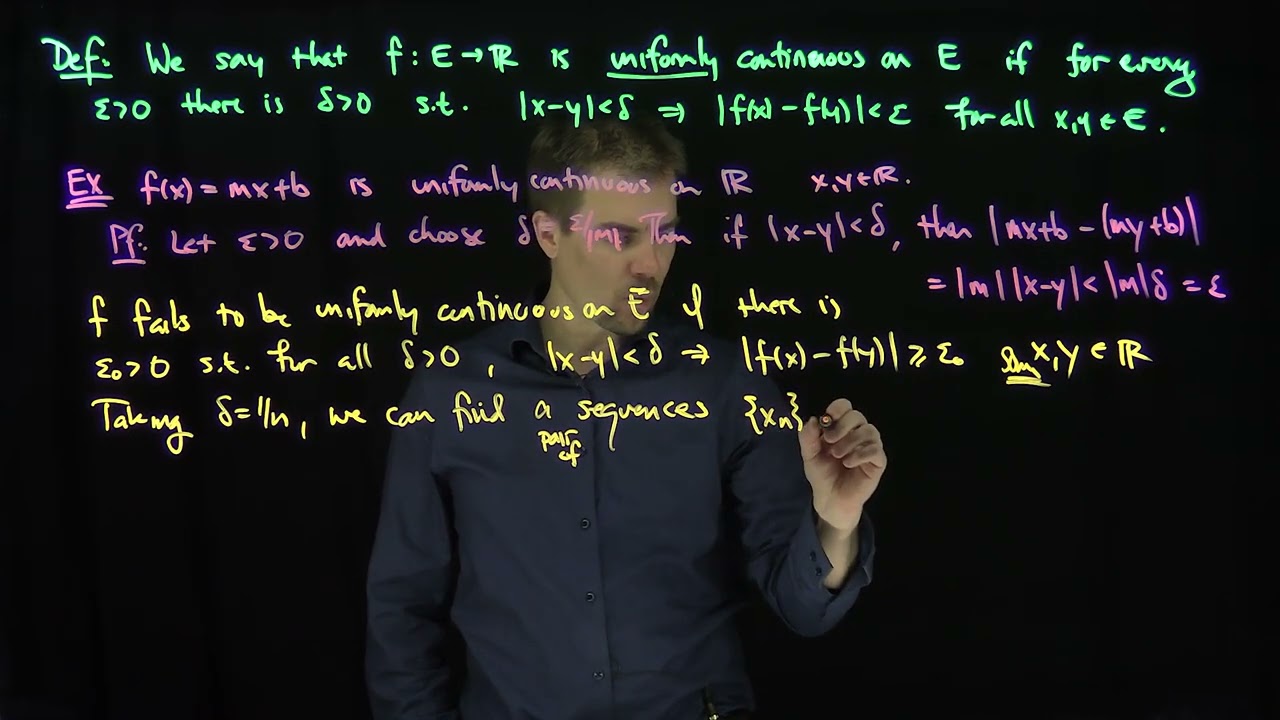 Def: We say that f: E→ℝ is uniformly continuous on E if for every
ε>0 there is δ>0 s.t. |x-y|<δ ⇒ |f(x)-f(y)|<ε for all x,y∈E.
Ex f(x)=mx+b is uniformly continuous on ℝ x,y∈ℝ.
Pf: Let ε>0 and choose δ=ε/|m|. Then if |x-y|<δ, then |mx+b-(my+b)|
=|m||x-y|<|m|δ=ε
f fails to be uniformly continuous on E if there is
ε₀>0 s.t. for all δ>0, |x-y|<δ ⇒ |f(x)-f(y)|≥ε₀ some x,y∈ℝ
Taking δ=1/n, we can find a sequences {xn}
pair
of